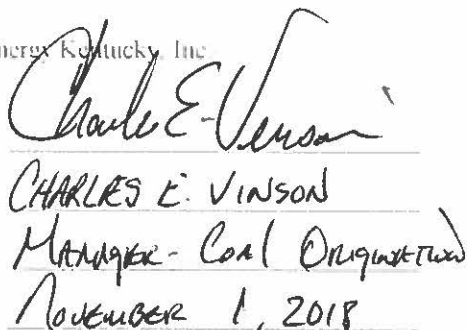 nergy Kentucky, Inc
Charles E. Vinson
CHARLES E. VINSON
MANAGER - COAL ORIGINATION
NOVEMBER 1, 2018